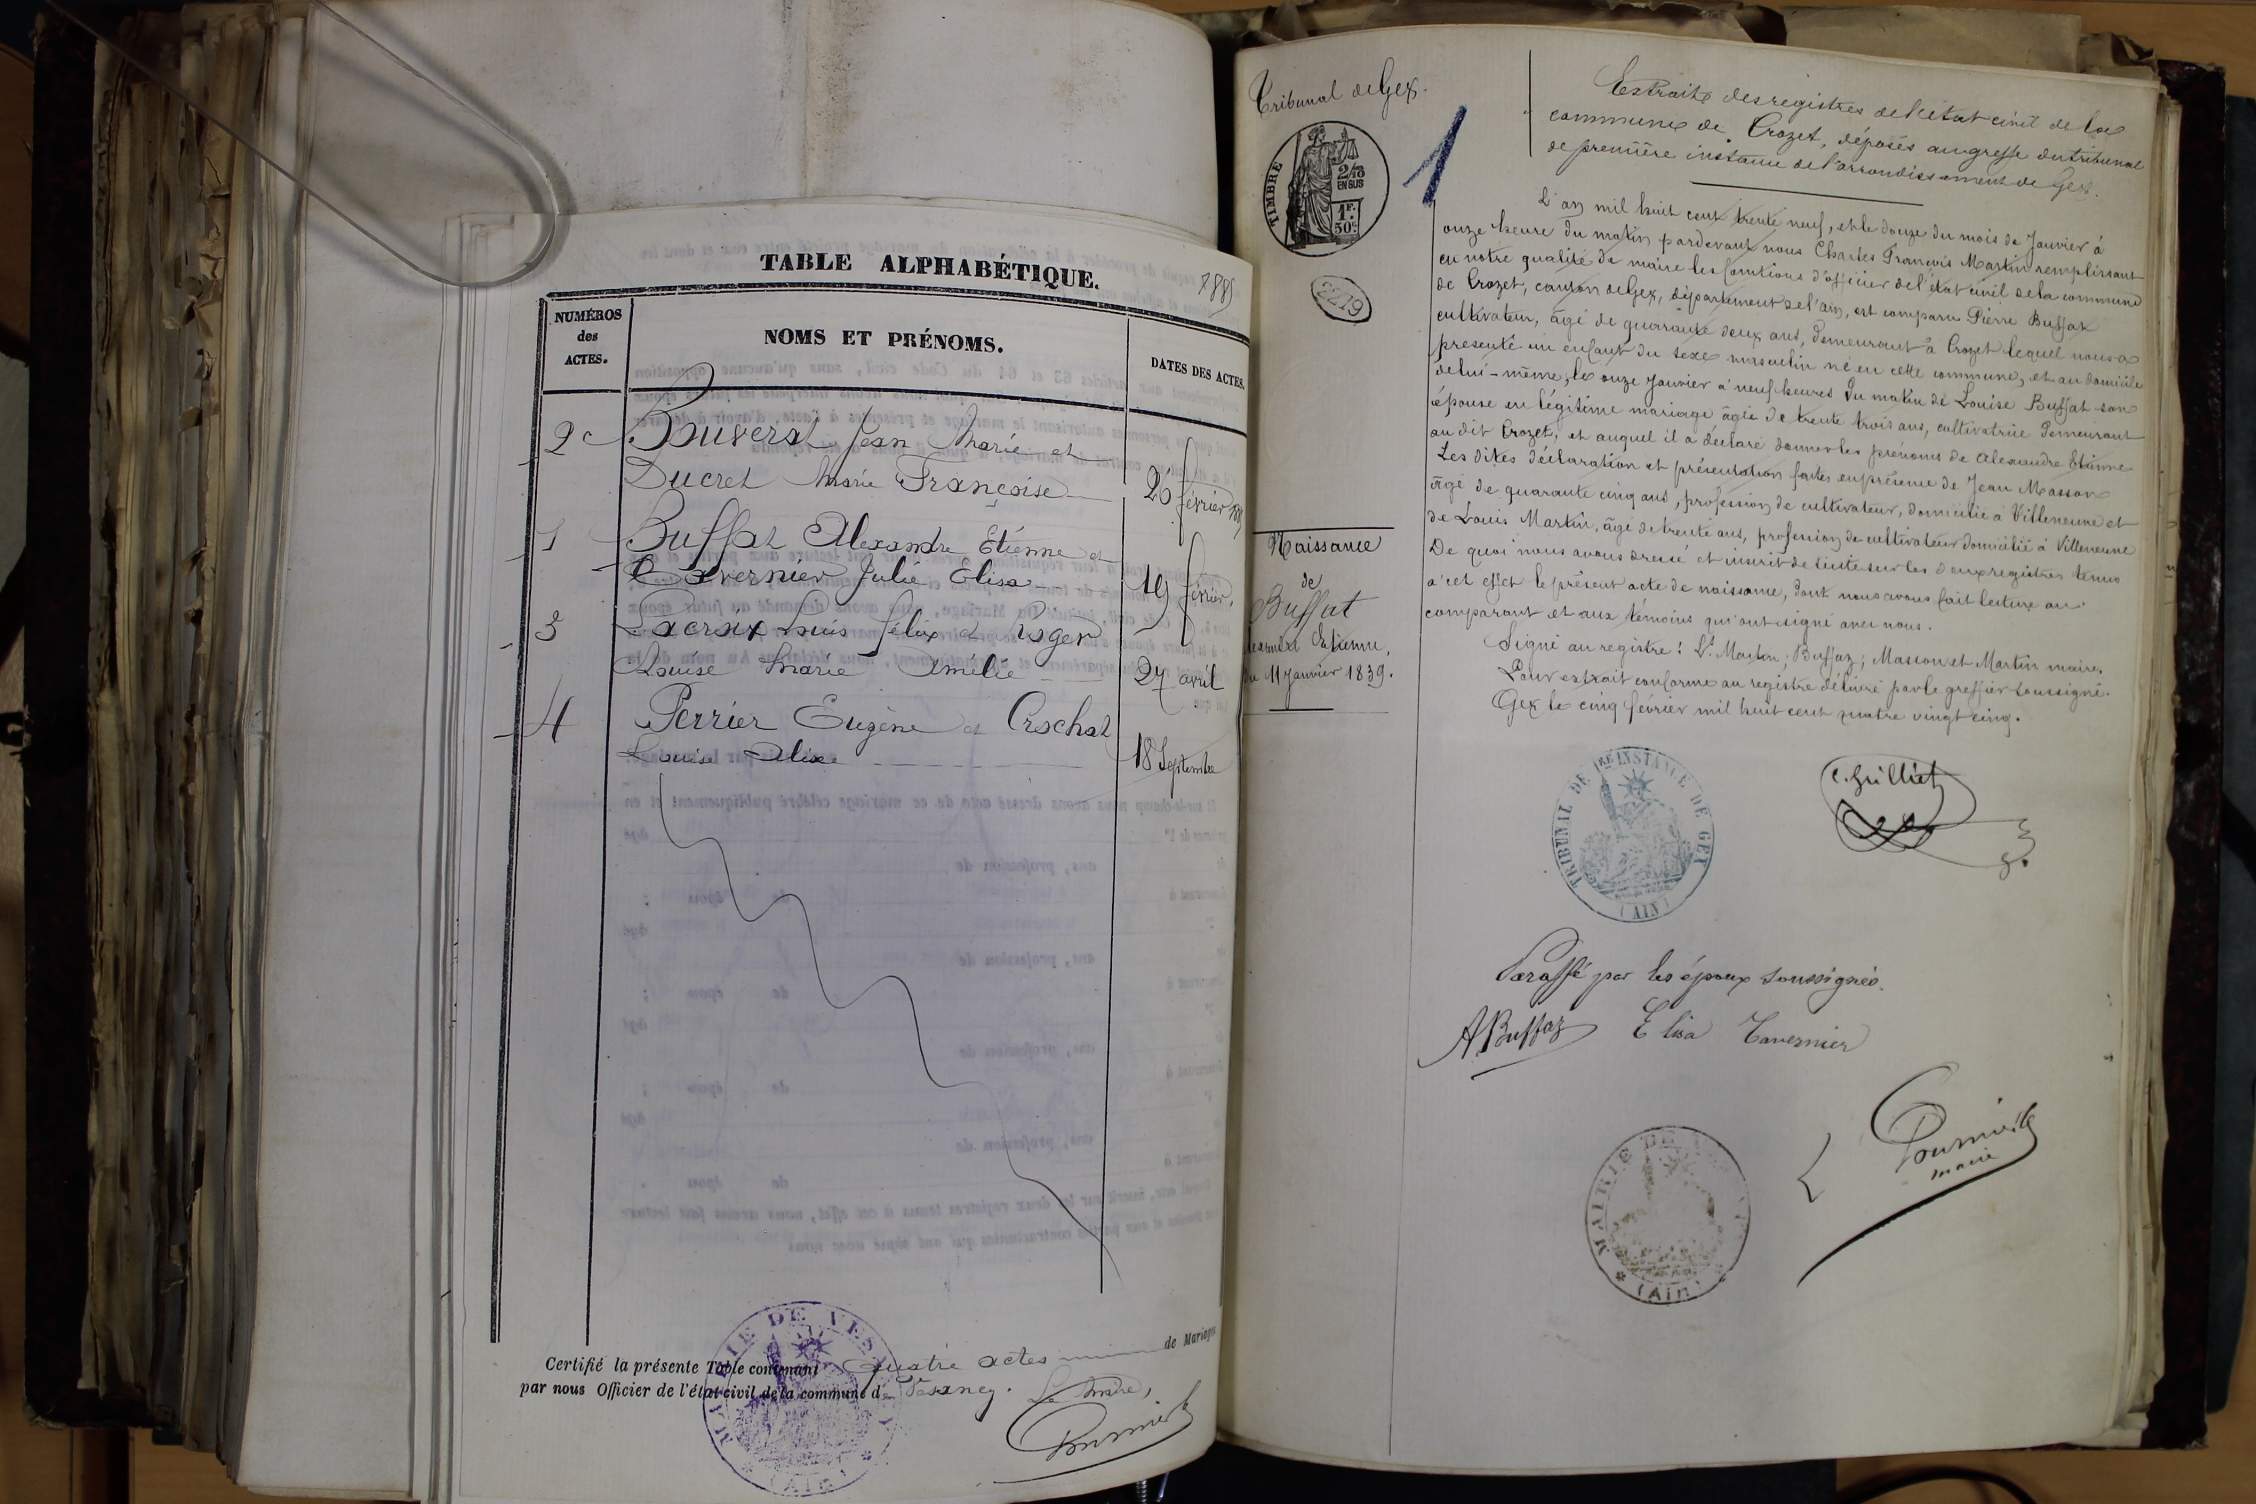 1885
TABLE ALPHABÉTIQUE.
NUMÉROS
des
ACTES.
NOMS ET PRÉNOMS.
DATES DES ACTES.
2 Bouverat Jean Marie et
Ducret Marie Françoise 26 février
1 Buffat Alexandre Etienne et
Tavernier Julie Elisa 19 février.
3 Lacroix Louis félix et Roger
Louise Marie Amélie 27 avril
4 Perrier Eugène et Crochat
Louise Alixe 18 Septembre
Certifié la présente Table contenant quatre actes de Mariages
par nous Officier de l'état civil de la commune de Vesancy. Le Maire,
MAIRIE DE VES
(AIN)
Tribunal de Gex.
TIMBRE
2/10
EN SUS
1F.
50c
2219
1
Extrait des registres de l'état civil de la
commune de Crozet, déposés au greffe du tribunal
de première instance de l'arrondissement de Gex.
L'an mil huit cent trente neuf, et le douze du mois de Janvier à
onze heure du matin pardevant nous Charles François Martin remplissant
en notre qualité de maire les fonctions d'officier de l'état civil de la commune
de Crozet, canton de Gex, département de l'ain, est comparu Pierre Buffat
cultivateur, âgé de quarante deux ans, demeurant à Crozet lequel nous a
présenté un enfant du sexe masculin né en cette commune, et au domicile
de lui-même, le onze Janvier à neuf heures du matin de Louise Buffat son
épouse en légitime mariage âgée de trente trois ans, cultivatrice demeurant
au dit Crozet, et auquel il a déclaré donner les prénoms de Alexandre Etienne
Les dites déclaration et présentation faites en présence de Jean Masson
âgé de quarante cinq ans, profession de cultivateur, domicilié à Villeneuve et
de Louis Martin, âgé de trente ans, profession de cultivateur domicilié à Villeneuve
De quoi nous avons dressé et inscrit de suite sur les deux registres tenus
à cet effet le présent acte de naissance, dont nous avons fait lecture au
comparant et aux témoins qui ont signé avec nous.
Signé au registre: Ls Martin; Buffaz; Masson et Martin maire.
Pour extrait conforme au registre délivré par le greffier soussigné.
Gex le cinq février mil huit cent quatre vingt cinq.
Naissance
de
Buffat
Alexandre Etienne,
du 11 Janvier 1839.
TRIBUNAL DE 1RE INSTANCE DE GEX
(AIN)
Paraffé par les époux soussignés.
A. Buffaz Elisa Tavernier
MAIRIE DE
(Ain)
maire